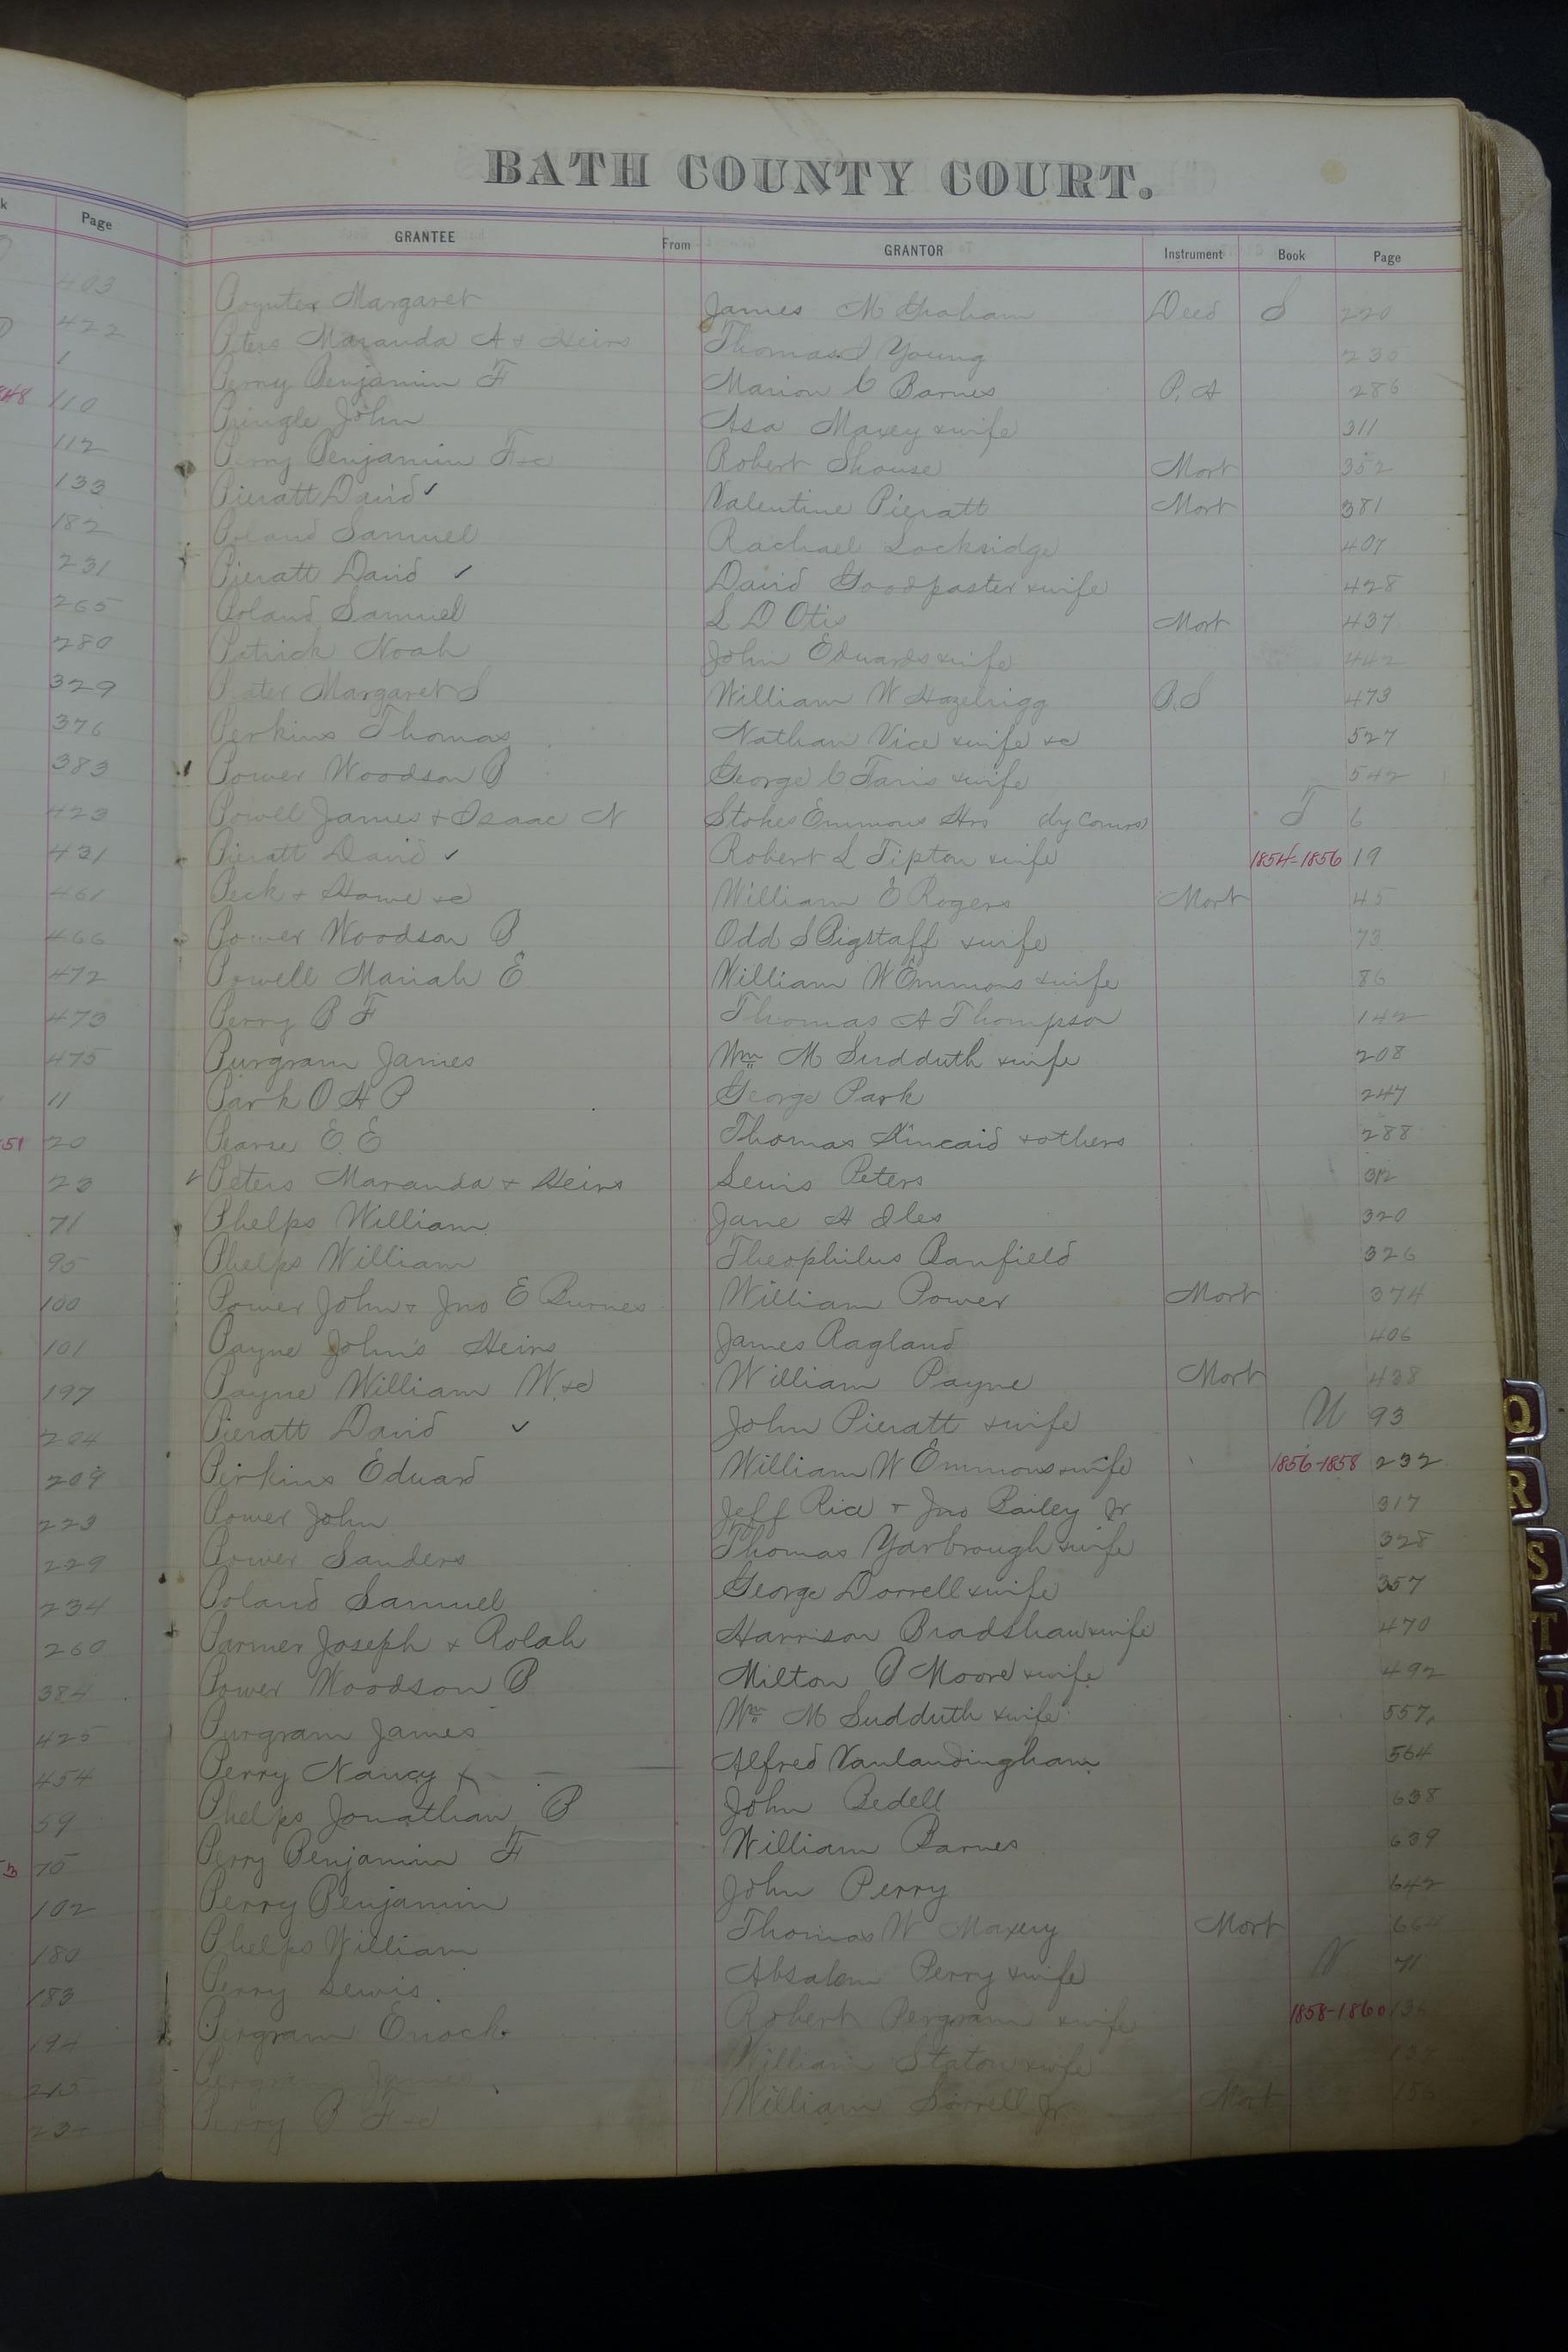 BATH COUNTY COURT.
Page GRANTEE From GRANTOR Instrument Book Page
403 Poynter Margaret James M Graham Deed S 220
422 Peters Maranda A & Heirs Thomas I Young 235
1 Perry Benjamin F Marion C Barnes P. A 286
110 Pringle John Asa Maxey & wife 311
112 Perry Benjamin F &c Robert Shouse Mort 352
133 Pieratt David ✓ Valentine Pieratt Mort 381
182 Poland Samuel Rachael Locksidge 407
231 Pieratt David ✓ David Goodpaster & wife 428
265 Poland Samuel L D Otis Mort 437
280 Patrick Noah John Edwards & wife 442
329 Prater Margaret S William W Hazelrigg B.S 473
376 Perkins Thomas Nathan Vice & wife &c 527
383 Power Woodson B George C Faris & wife 542
423 Powell James & Isaac N Stokes Emmons Hrs (by Comrs) T 6
431 Pieratt David ✓ Robert L Tipton & wife 1854-1856 19
461 Peck & Howe &c William E Rogers Mort 45
466 Power Woodson B Odd S Pigstaff & wife 73
472 Powell Mariah E William W Emmons & wife 86
473 Perry B F Thomas A Thompson 142
475 Purgram James Wm M Sudduth & wife 208
11 Park O H P George Park 247
51 20 Pearse E. E Thomas Kincaid & others 288
23 ✓ Peters Maranda & Heirs Lewis Peters 312
71 Phelps William Jane H Iles 320
95 Phelps William Theophilus Banfield 326
100 Power John & Jno E Burnes William Power Mort 374
101 Payne John's Heirs James Ragland 406
197 Payne William W. &c William Payne Mort 438
204 Pieratt David ✓ John Pieratt & wife U 93
209 Perkins Edward William W Emmons & wife 1856-1858 232
223 Power John Jeff Rice & Jno Bailey Jr 317
229 Power Sanders Thomas Yarbrough & wife 328
234 Poland Samuel George Dorrell & wife 357
260 Parmer Joseph & Rolah Harrison Bradshaw & wife 470
384 Power Woodson B Milton P Moore & wife 492
425 Purgram James Wm M Sudduth & wife 557
454 Perry Nancy Alfred Vanlandingham 564
59 Phelps Jonathan B John Bedell 638
3 75 Perry Benjamin F William Barnes 639
102 Perry Benjamin John Perry 642
180 Phelps William Thomas W Maxey Mort
183 Perry Lewis Absalom Perry & wife V 71
194 Pergram Enoch Robert Pergram & wife 1858-1860
215 Pergram James William Staton & wife
Perry B F &c William Sorrell Jr Mort
Q
R
S
T
U
V